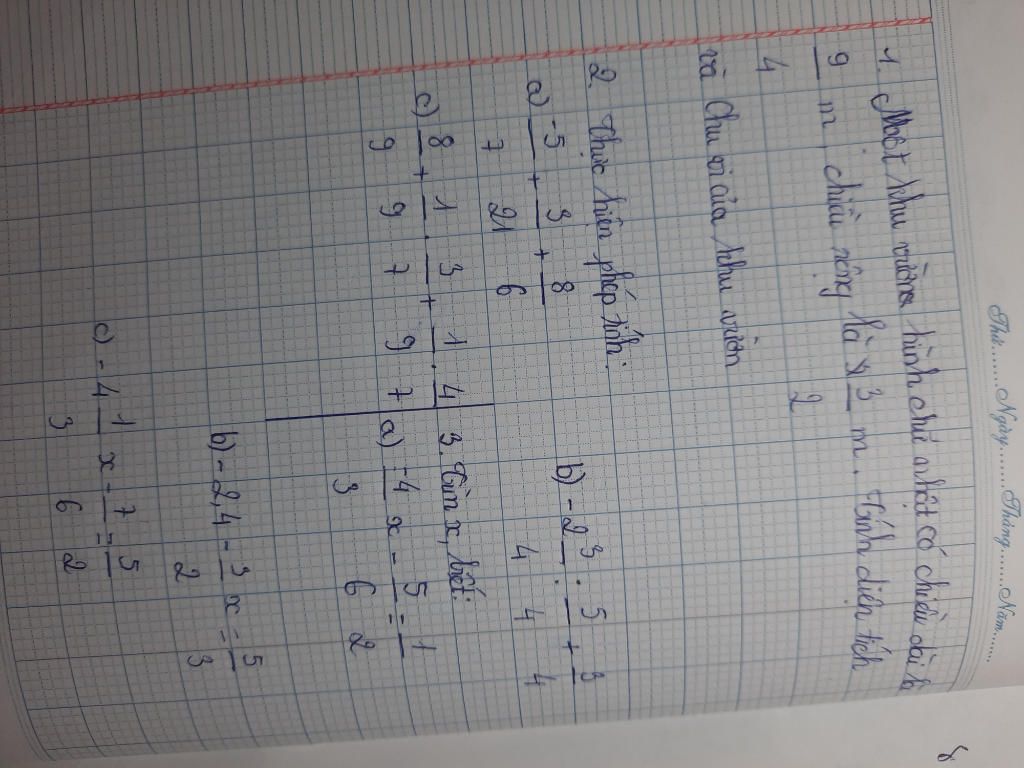 Thứ......Ngày.......Tháng.......Năm.......
8
1. Một khu vườn hình chữ nhật có chiều dài là
9/4 m, chiều rộng là 3/2 m. Tính diện tích
và chu vi của khu vườn
2 Thực hiện phép tính:
a) -5/7 + 3/21 + 8/6 b) -2 3/4 : 5/4 + 3/4
c) 8/9 + 1/9 . 3/7 + 1/9 . 4/7
3. Tìm x, biết:
a) -4/3 x - 5/6 = 1/2
b) -2,4 - 3/2 x = 5/3
c) -4 1/3 x - 7/6 = 5/2